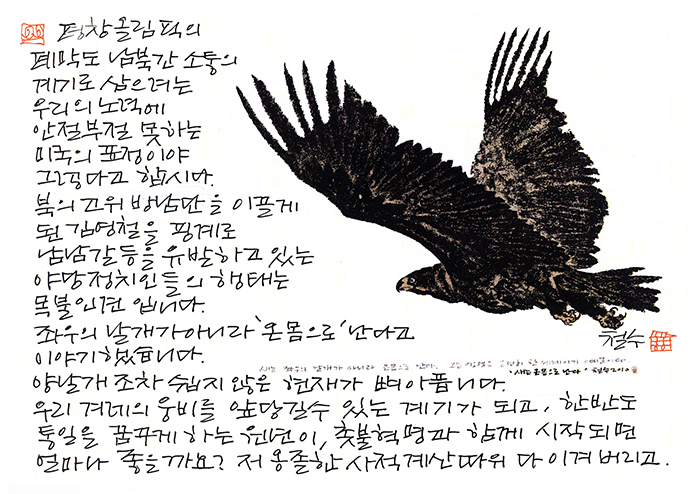 평창올림픽의
폐막도 남북간 소통의
계기로 삼으려는
우리의 노력에
안절부절 못하는
미국의 표정이야
그렇다고 합시다.
북의 고위 방남단을 이끌게
된 김영철을 핑계로
남남갈등을 유발하고 있는
야당정치인들의 행태는
목불인견 입니다.
좌우의 날개가 아니라 '온몸으로' 난다고
이야기 했습니다.
철수
새는 좌우의 날개가 아니라 온몸으로 난다.
'새는 온몸으로 난다' 철수 2010
양날개 조차 쉽지 않은 현재가 뼈아픕니다.
우리 겨레의 웅비를 앞당길수 있는 계기가 되고, 한반도
통일을 꿈꾸게 하는 원년이, 촛불혁명과 함께 시작되면
얼마나 좋을까요? 저 옹졸한 사적계산 따위 다 이겨 버리고.